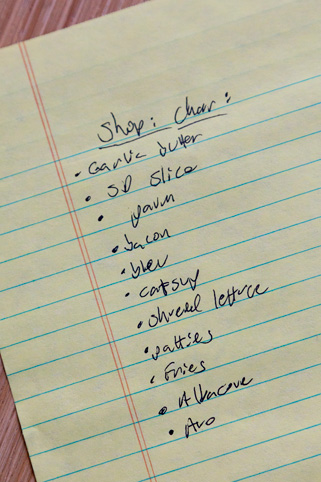 Shop: Char:
• Garlic butter
• SD Slice
• parm
• bacon
• bleu
• catsup
• shredd lettuce
• patties
• Fries
• Albacore
• Avo